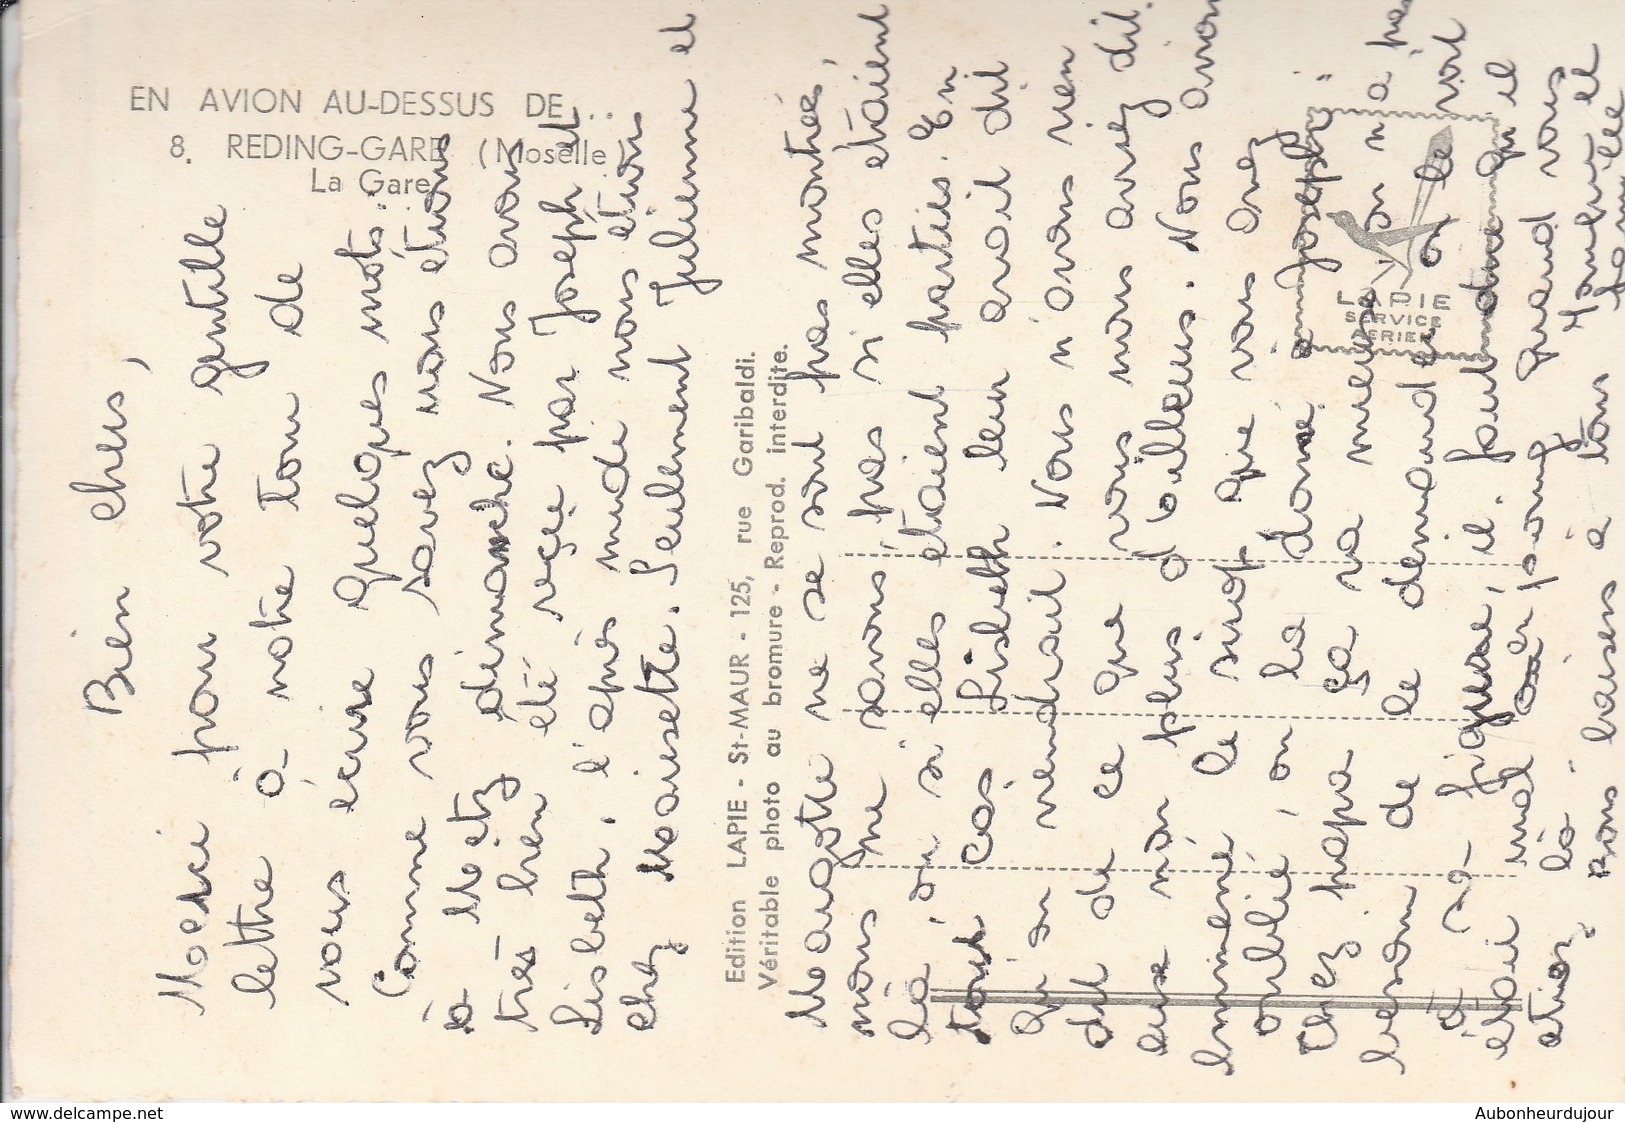 EN AVION AU-DESSUS DE...
8. REDING-GARE (Moselle)
La Gare
Bien chers,
Merci pour votre gentille
lettre à notre tour de
vous écrire quelques mots.
Comme vous savez nous étions
à Metz dimanche. Nous avons
très bien été reçue par Joseph et
Lisbeth, l'après midi nous étions
chez Maisette. Seulement Julienne et
Edition LAPIE - St-MAUR - 125, rue Garibaldi.
Véritable photo au bromure - Reprod. interdite.
Maugotte ne se sont pas montrées,
nous ne savons pas si elles étaient
là, ou si elles étaient parties. En
tout cas Lisbeth leur avait dit
qu'on viendrait. Nous n'avons rien
dit de ce que vous nous aviez dit.
eux non plus d'ailleurs. Nous avons
emmené le sirop que vous avez
oublié, on la donné à Joseph.
Chez papa ça va mieux on n'a pas
besoin de le demander on le voit
à sa figure, il faut dire qu'il
était mal en point quand vous
étiez là
Bons baisers à tous
LAPIE
SERVICE
AERIEN
www.delcampe.net
Aubonheurdujour